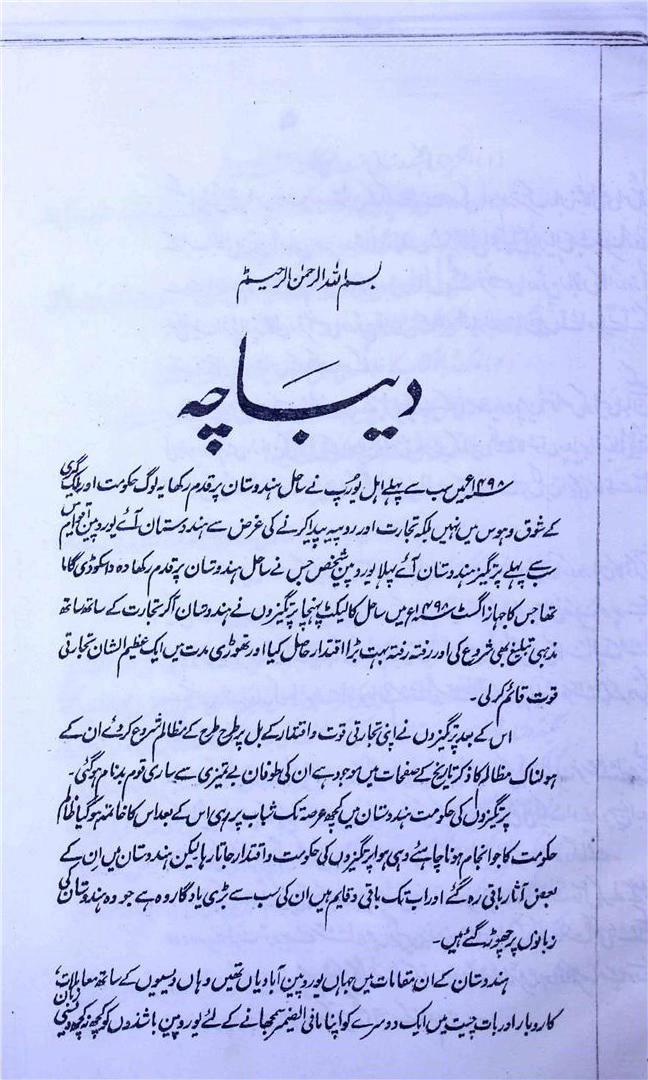 بسم اللہ الرحمٰن الرحیم
دیباچہ
۱۴۹۸ء میں سب سے پہلے اہل یورپ نے ساحل ہندوستان پر قدم رکھا یہ لوگ حکومت اور ملک گیری
کے شوق و ہوس میں نہیں بلکہ تجارت اور روپیہ پیدا کرنے کی غرض سے ہندوستان آئے یوروپین اقوام میں
سب سے پہلے پرتگیز ہندوستان آئے پہلا یوروپین شخص جس نے ساحل ہندوستان پر قدم رکھا وہ واسکوڈی گاما
تھا جس کا جہاز اگست ۱۴۹۸ء میں ساحل کالیکٹ پہنچا پرتگیزوں نے ہندوستان آکر تجارت کے ساتھ ساتھ
مذہبی تبلیغ بھی شروع کی اور رفتہ رفتہ بہت بڑا اقتدار حاصل کیا اور تھوڑی مدت میں ایک عظیم الشان تجارتی
قوت قائم کرلی۔
اس کے بعد پرتگیزوں نے اپنی تجارتی قوت و اقتدار کے بل پر طرح طرح کے مظالم شروع کردئے ان کے
ہولناک مظالم کا ذکر تاریخ کے صفحات میں موجود ہے ان کی طوفان بے تمیزی سے ساری قوم بدنام ہوگئی۔
پرتگیزوں کی حکومت ہندوستان میں کچھ عرصہ تک شباب پر رہی اس کے بعد اس کا خاتمہ ہوگیا ظالم
حکومت کا جو انجام ہونا چاہئے وہی ہوا پرتگیزوں کی حکومت و اقتدار جاتا رہا لیکن ہندوستان میں ان کے
بعض آثار باقی رہ گئے اور اب تک باقی و قایم ہیں ان کی سب سے بڑی یادگار وہ ہے جو وہ ہندوستان کی
زبانوں پر چھوڑ گئے ہیں۔
ہندوستان کے ان مقامات میں جہاں یوروپین آبادیاں تھیں وہاں دیسیوں کے ساتھ معاملات،
کاروبار اور بات چیت میں ایک دوسرے کو اپنا مافی الضمیر سمجھانے کے لئے یوروپین باشندوں کو کچھ نہ کچھ دیسی زبان